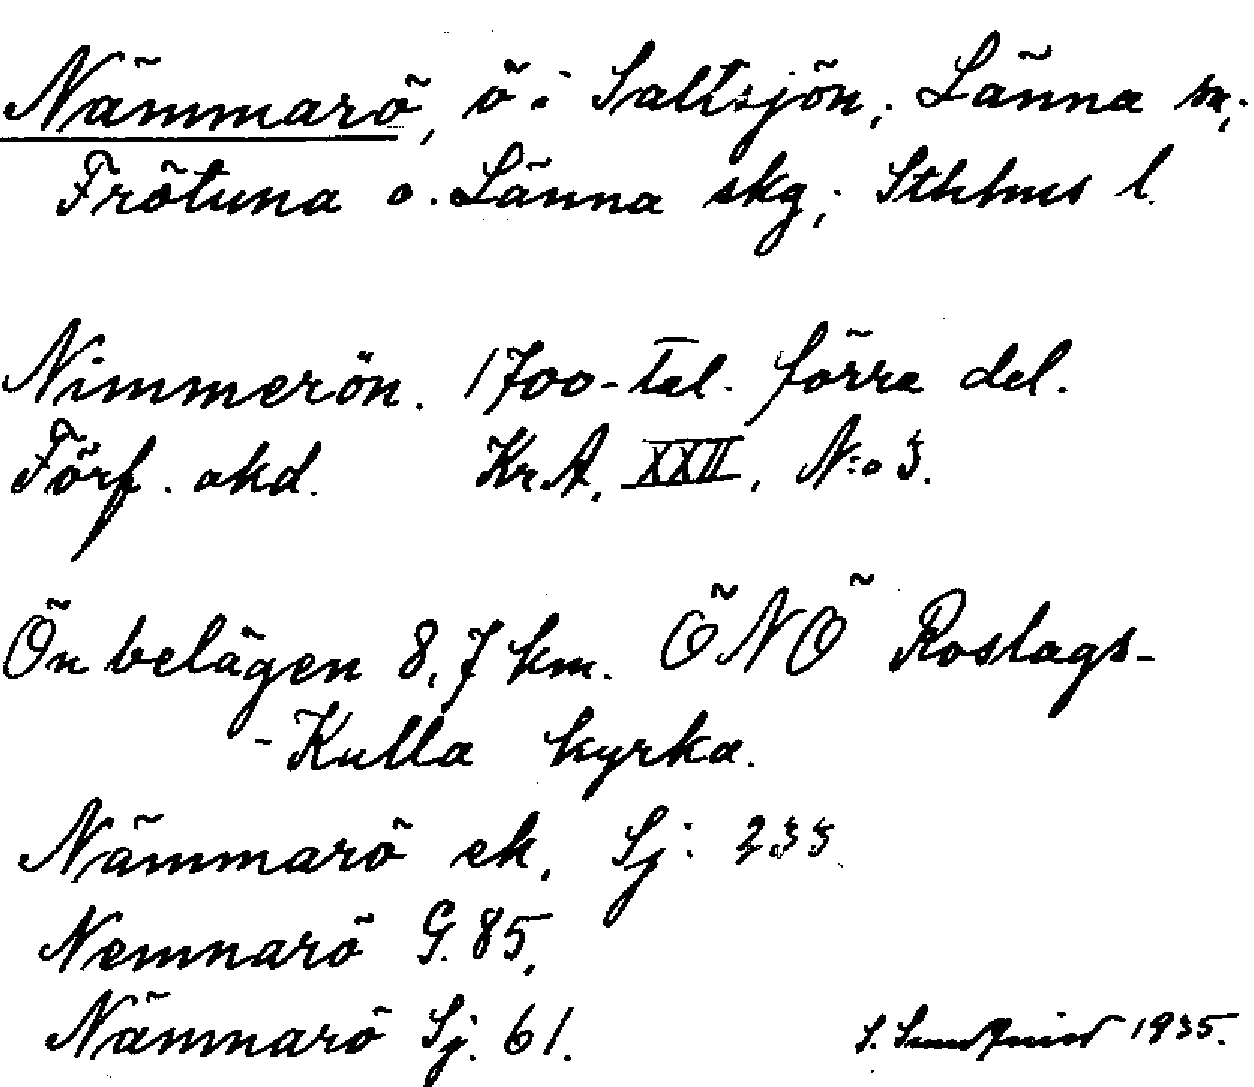 Nämmarö, ö i Saltsjön, Länna sn,
Frötuna o. Länna skg, Sthlms l.
Nimmerön. 1700-tal. förra del.
Förf. okd. Kr. A. XXII, N:o 3.
Ön belägen 8,7 km. ÖNÖ Roslags-
-Kulla kyrka.
Nämmarö ek. Sj: 233
Nemnarö G. 85,
Nämnarö Sj. 61. S. 1935.